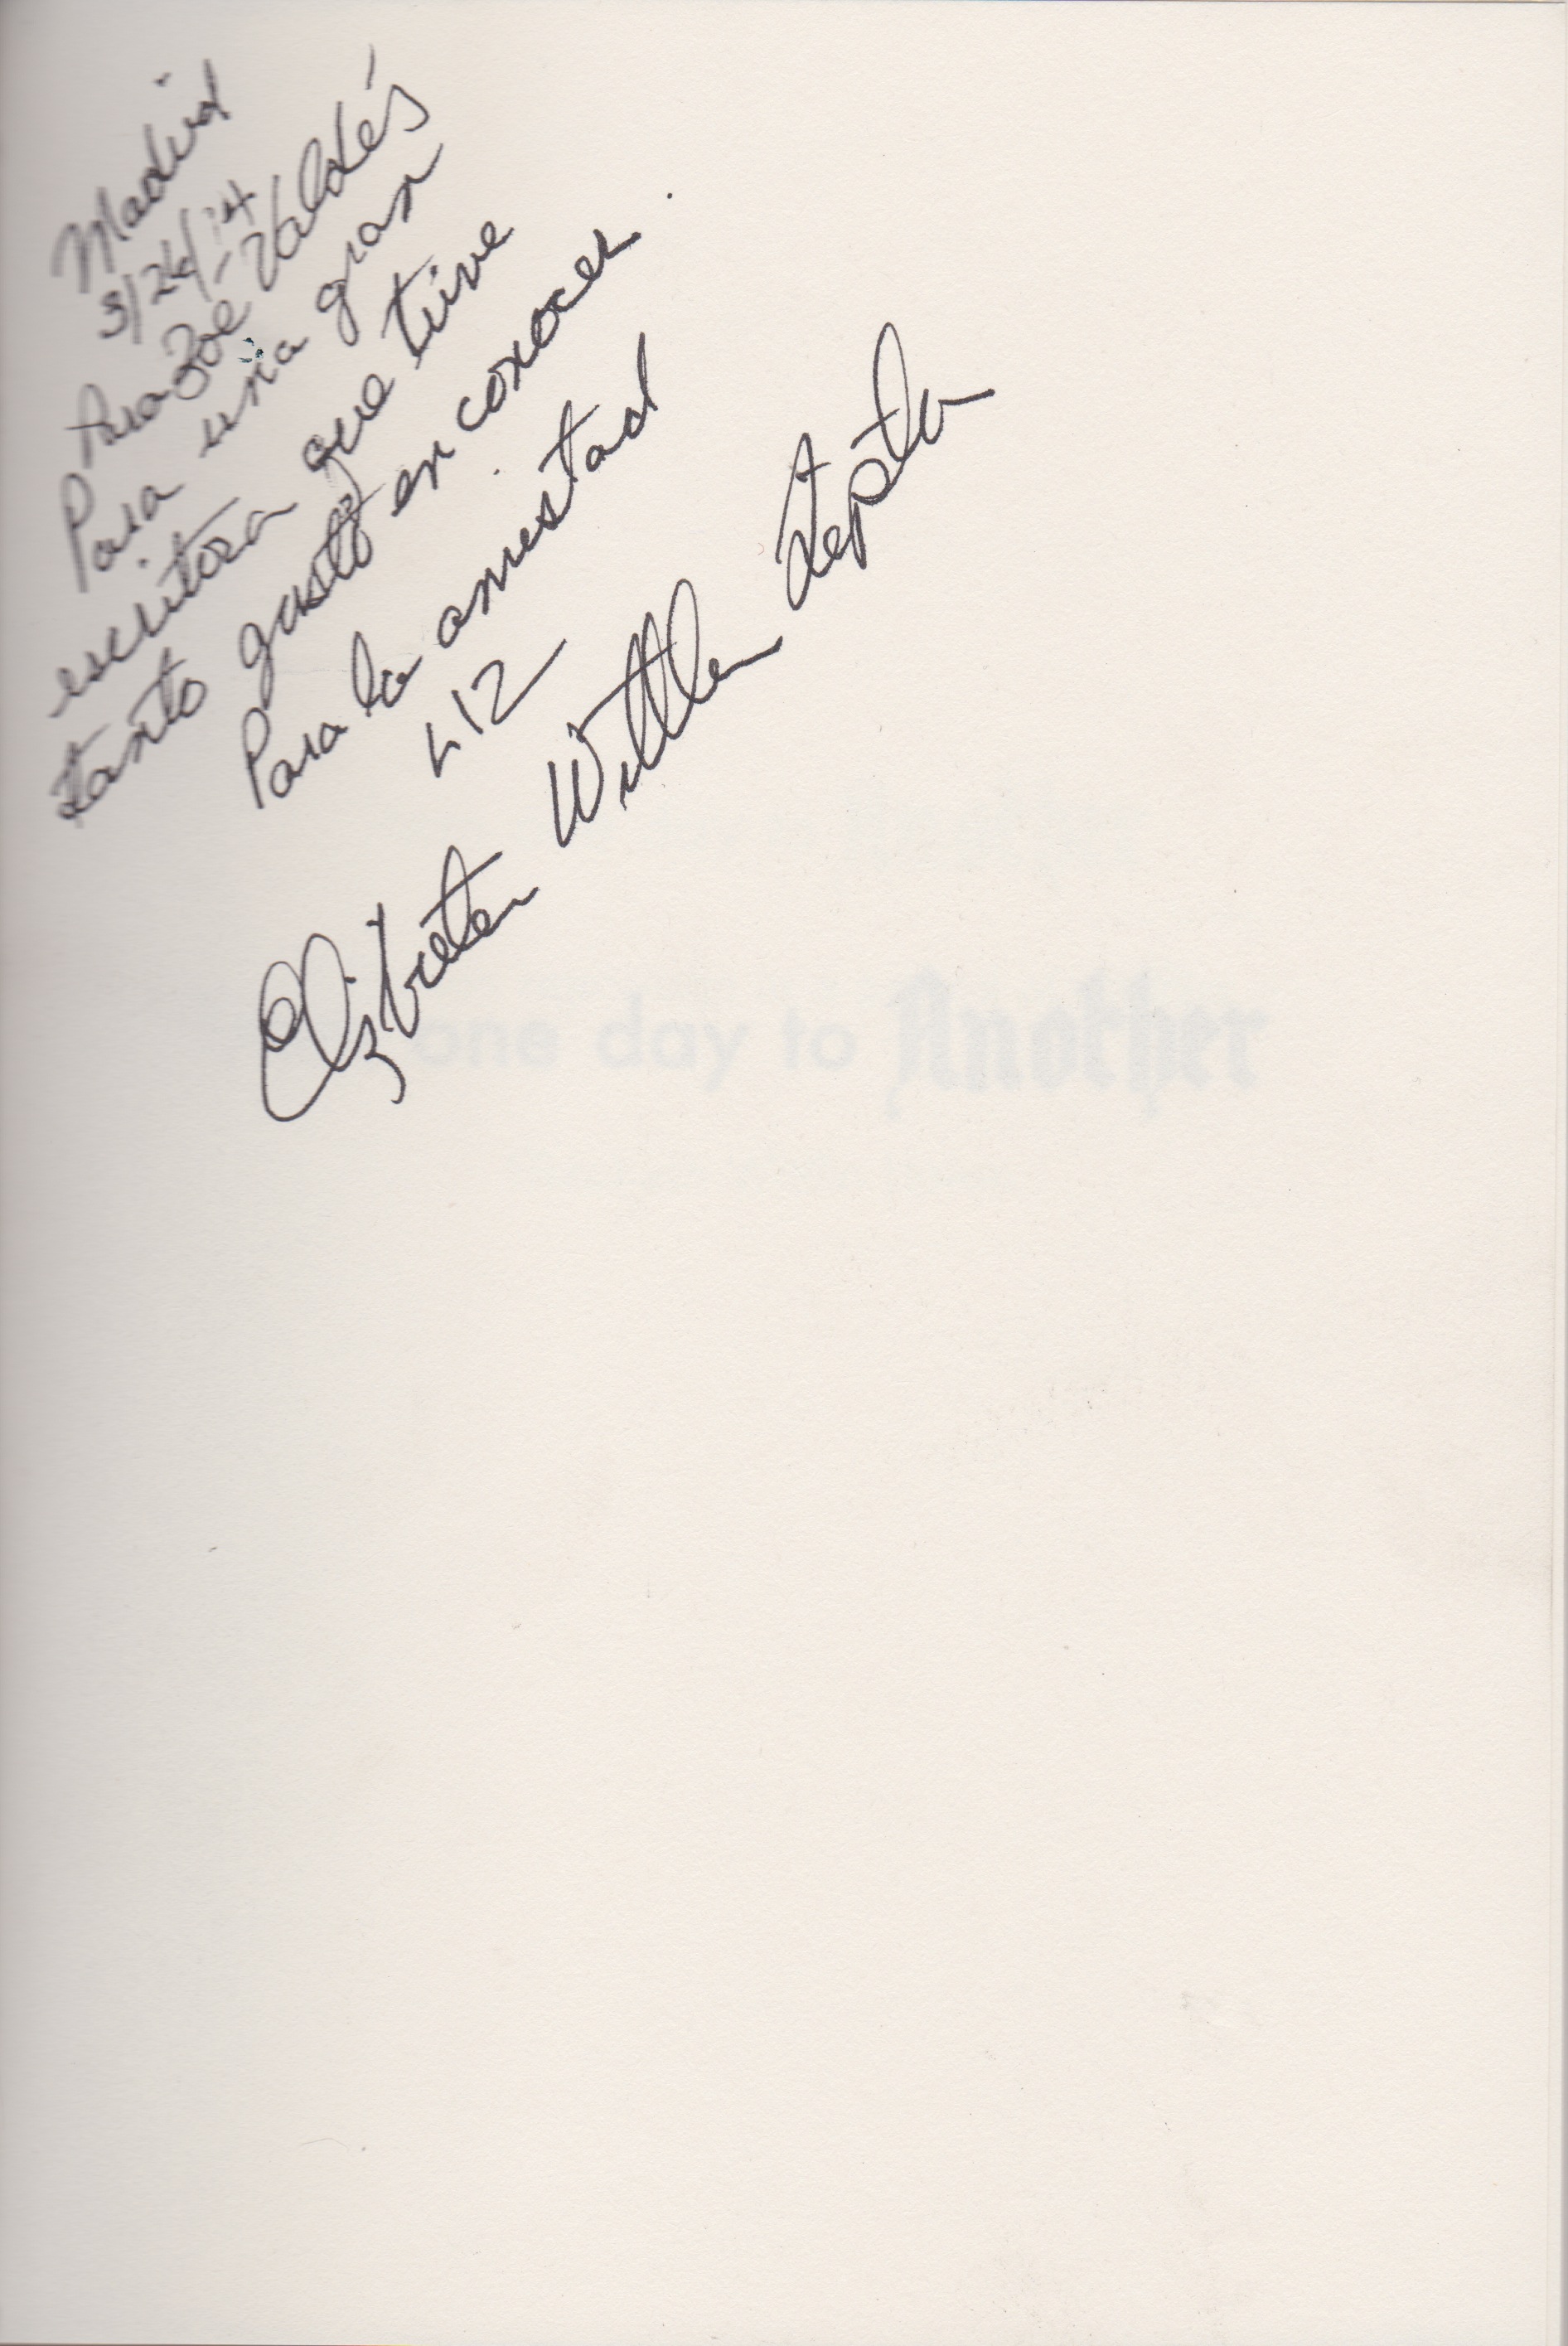 Madrid
3/26/14
Para Zoe Valdés
Para una gran
escritora que tuve
tanto gusto en conocer.
Para la amistad
LIZ
Elizabeth Wittlin Lipton
one day to Another